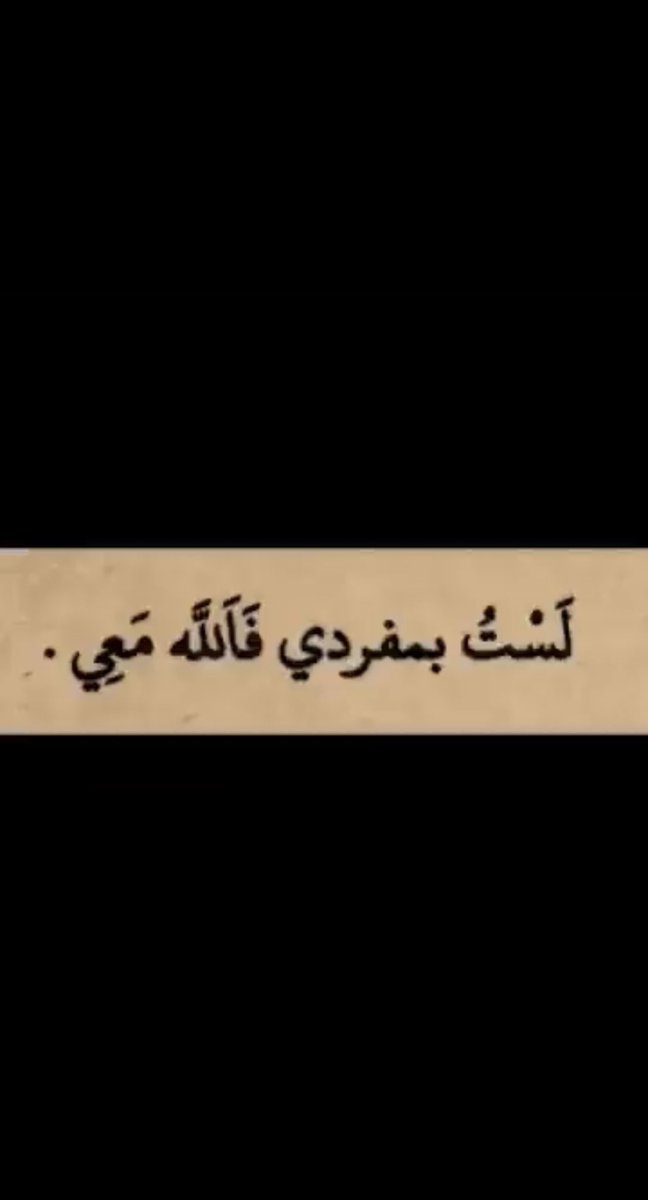 لَسْتُ بمفردي فَاَللَّه مَعِي .